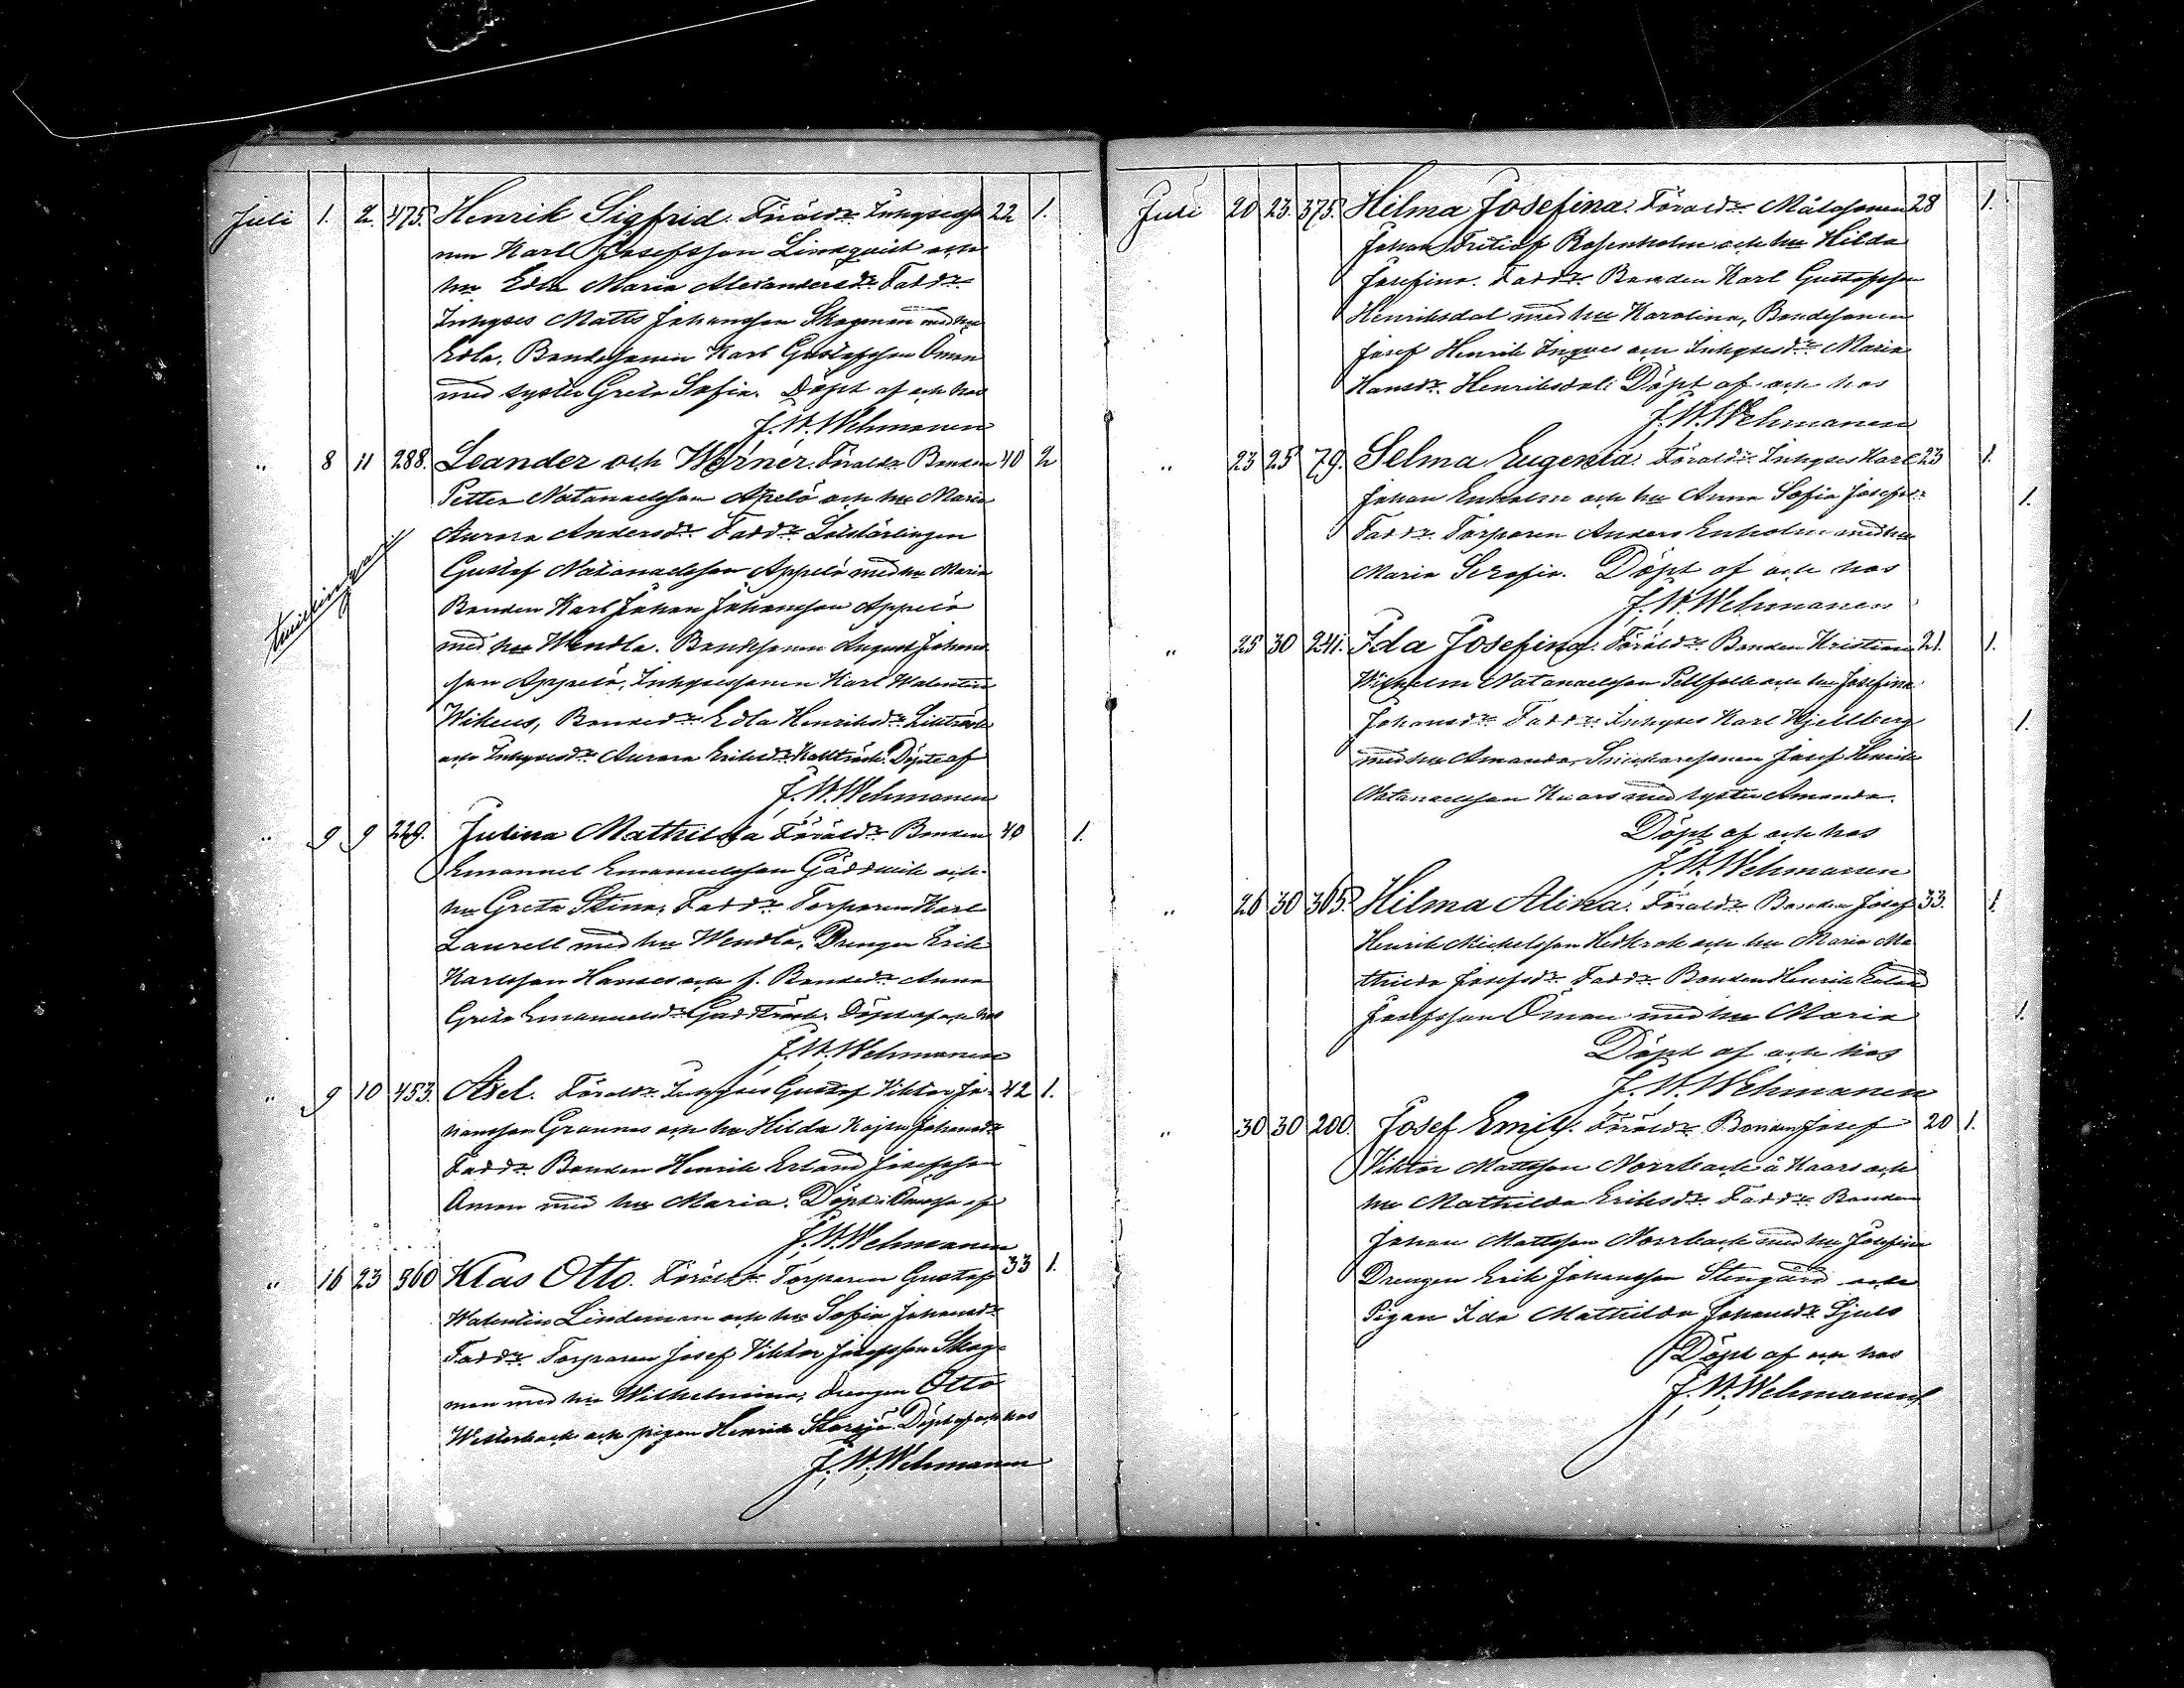 Juli 1. 2. 475. Henrik Sigfrid. Föräldr Inhysesso 22 1.
nen Karl Josefsson Lindqvist och
hu Edla Maria Alexandersdr Faddr
Inhyses Matts Johansson Skogman med hu
Edla. Bondesonen Karl Gustafsson Öman
med syster Greta Sofia. Döpt af och hos
J. W. Wehmanen
" 8 11 288. Leander och Werner. Föräldr Bonden 40 2
Petter Natanaelsson Apelö och hu Maria
Aurora Andersdr Faddr
Gustaf Natanaelsson Appelö med hu Maria
Bonden Karl Johan Johansson Appelö
med hu Wendla. Bondesonen August Johans
son Appelö, Inhysessonen Karl Walentin
Wikeus, Bondedr Edla Henriksdr
och Inhysesdr Aurora Eriksdr Döpte af
J. W. Wehmanen
tvillingar
" 9 9 229. Julina Mathilda Föräldr Bonden 40 1.
Emanuel Emanuelsson Gäddvik och
hu Greta Stina, Faddr Torparen Karl
Laurell med hu Wendla, Drengen Erik
Karlsson Hannes och f. Bondedr Anna
Greta Emanuelsdr Döpt af och hos
J. W. Wehmanen
" 9 10 453. Axel. Föräldr Inhyses Gustaf Viktor Jo- 42 1.
hansson Grannas och hu Hilda Kajsa Johansdr
Faddr Bonden Henrik Erland Josefsson
Öman med hu Maria. Döpt af
J. W. Wehmanen
" 16 23 360 Klas Otto. Föräldr Torparen Gustaf 33 1.
Walentin Lindeman och hu Sofia Johansdr
Faddr Torparen Josef Viktor Josefsson Skog-
man med hu Wilhelmina, drengen Otto
Westerback och pigan Henrika Storsjö. Döpt af och hos
J. W. Wehmanen
Juli 20 23. 375. Hilma Josefina. Föräldr Målaresonen 28 1.
Johan Fritiof Rosenholm och hu Hilda
Josefina. Faddr Bonden Karl Gustafsson
Henriksdal med hu Karolina, Bondesonen
Josef Henrik Ingves och Inhysesdr Maria
Hansdr Henriksdal. Döpt af och hos
J. W. Wehmanen
" 23 25 79. Selma Eugenia. Föräldr Inhyses Karl 23 1.
Johan Enholm och hu Anna Sofia Josefsdr 1.
Faddr Torparen Anders Enholm med hu
Maria Serafia. Döpt af och hos
J. W. Wehmanen
" 25 30 241. Ida Josefina. Föräldr Bonden Kristian 21. 1.
Wilhelm Natanaelsson Pellfolk och hu Josefina
Johansdr Faddr Inhyses Karl Kjellberg 1.
med hu Amanda, Snickaresonen Josef Henrik
Natanaelsson Kaars med syster Amanda.
Döpt af och hos
J. W. Wehmanen
" 26 30 305. Hilma Alina. Föräldr Bonden Josef 33. 1.
Henrik Mickelsson Hedkrok och hu Maria Ma
thilda Josefsdr Faddr Bonden Henrik Erland
Josefsson Öman med hu Maria 1.
Döpt af och hos
J. W. Wehmanen
" 30 30 200. Josef Emil. Föräldr Bonden Josef 20 1.
Viktor Mattsson Norrback å Kaars och
hu Mathilda Eriksdr Faddr Bonden
Johan Mattsson Norrback med hu Josefina
Drengen Erik Johansson Stengård och
Pigan Ida Mathilda Johansdr Sjuls
Döpt af och hos
J. W. Wehmanen